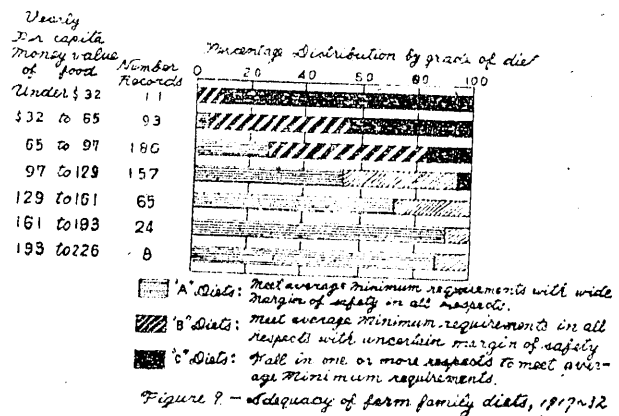 Yearly
Per capita
Money value
of food
Number
Records
Percentage Distribution by grade of diet
0 20 40 60 80 100
Under $ 32 11
$ 32 to 65 93
65 to 97 186
97 to 129 157
129 to 161 65
161 to 193 24
193 to 226 8
"A" Diets: Meet average minimum requirements with wide
Margin of safety in all respects.
"B" Diets: Meet average Minimum requirements in all
respects with uncertain margin of safety
"C" Diets: Fall in one or more respects to meet aver-
age Minimum requirements.
Figure 9. - Adequacy of farm family diets, 1917-32